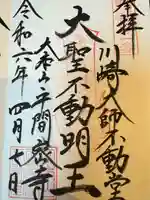 奉拝
川崎大師不動堂
大聖不動明王
大本山平間密寺
令和六年四月七日